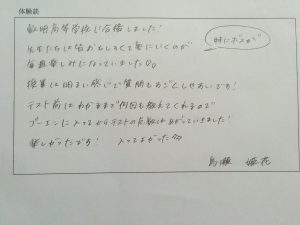 体験談
敬明高等学校に合格しました!
先生たちは皆おもしろくて塾にいくのが
毎週楽しみになっていました
時にボスが
授業は明るい感じで質問もすごくしやすいです!
テスト前はわかるまで何回も教えてくれるので
入ってからテストの点数は上がっていきました!
楽しかったです! 入ってよかった